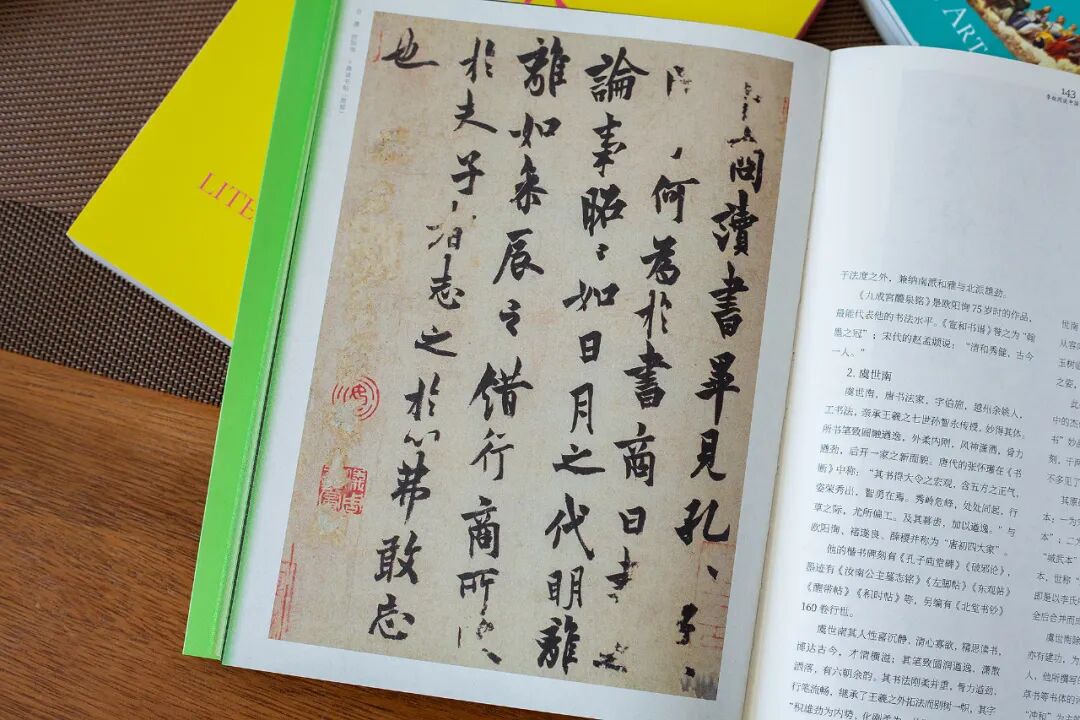 商讀書畢見孔子
何為於書商曰書之
論事昭〻如日月之代明離
離如參辰之錯行商所
於夫子者志之於心弗敢忘
也
LITE
ART
143
于法度之外，兼纳南派和雅与北派雄劲。
《九成宫醴泉铭》是欧阳询75岁时的作品，
最能代表他的书法水平。《宣和书谱》誉之为“翰
墨之冠”；宋代的赵孟頫说：“清和秀健，古今
一人。”
2. 虞世南
虞世南，唐书法家，字伯施，越州余姚人，
工书法，亲承王羲之七世孙智永传授，妙得其体。
所书笔致圆融遒逸，外柔内刚，风神潇洒，骨力
遒劲，后开一家之新面貌。唐代的张怀瓘在《书
断》中称：“其书得大令之宏观，含五方之正气，
姿荣秀出，智勇在焉。秀岭危峰，处处间起，行
草之际，尤所偏工。及其暮齿，加以遒逸。”与
欧阳询、褚遂良、薛稷并称为“唐初四大家”。
他的楷书碑刻有《孔子庙堂碑》《破邪论》，
墨迹有《汝南公主墓志铭》《左脚帖》《东观帖》
《醒带帖》《积时帖》等，另编有《北堂书钞》
160卷行世。
虞世南其人性喜沉静，清心寡欲，精思读书，
博达古今，才情横溢；其笔致圆润遒逸、潇散
洒落，有六朝余韵。其书法刚柔并重，骨力遒劲，
行笔流畅，继承了王羲之外拓法而别树一帜，其字